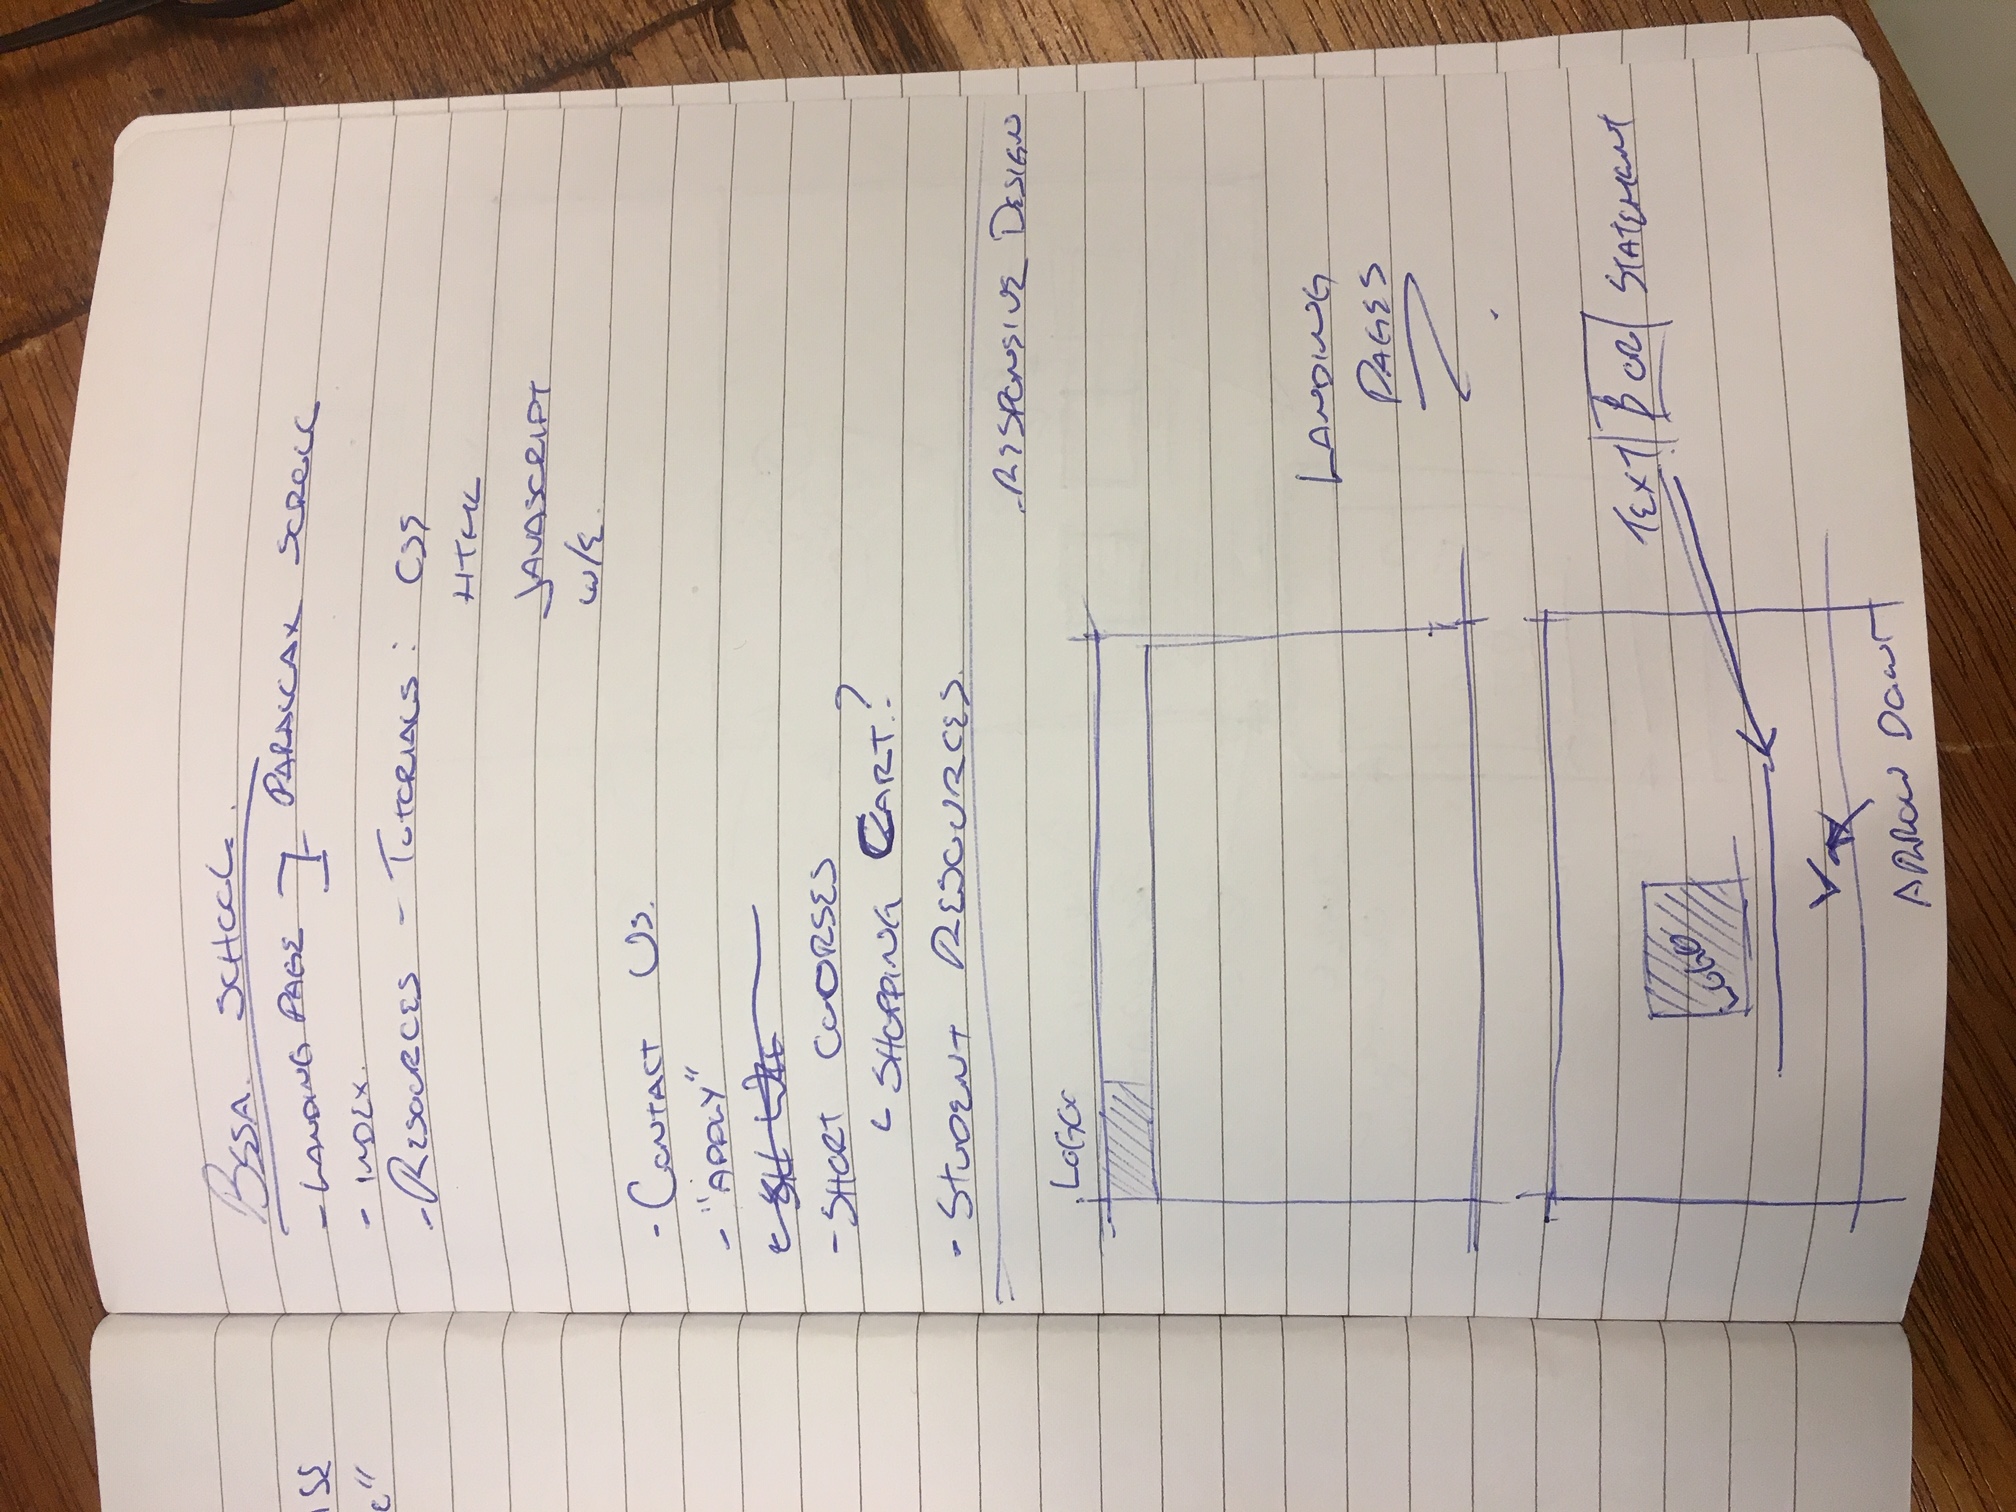 ISE
e"
BSSA. SCHOOL.
- LANDING PAGE ] PARALLAX SCROLL
- INDEX.
- RESOURCES - TUTORIALS : CSS
HTML
JAVASCRIPT
W/E.
- CONTACT US.
- "APPLY"
- SHORT COURSES
SHOPPING CART?
- STUDENT RESOURCES.
- RESPONSIVE DESIGN
LOGO
LANDING
PAGES
TEXT OR STATEMENT
LOGO
ARROW DOWN